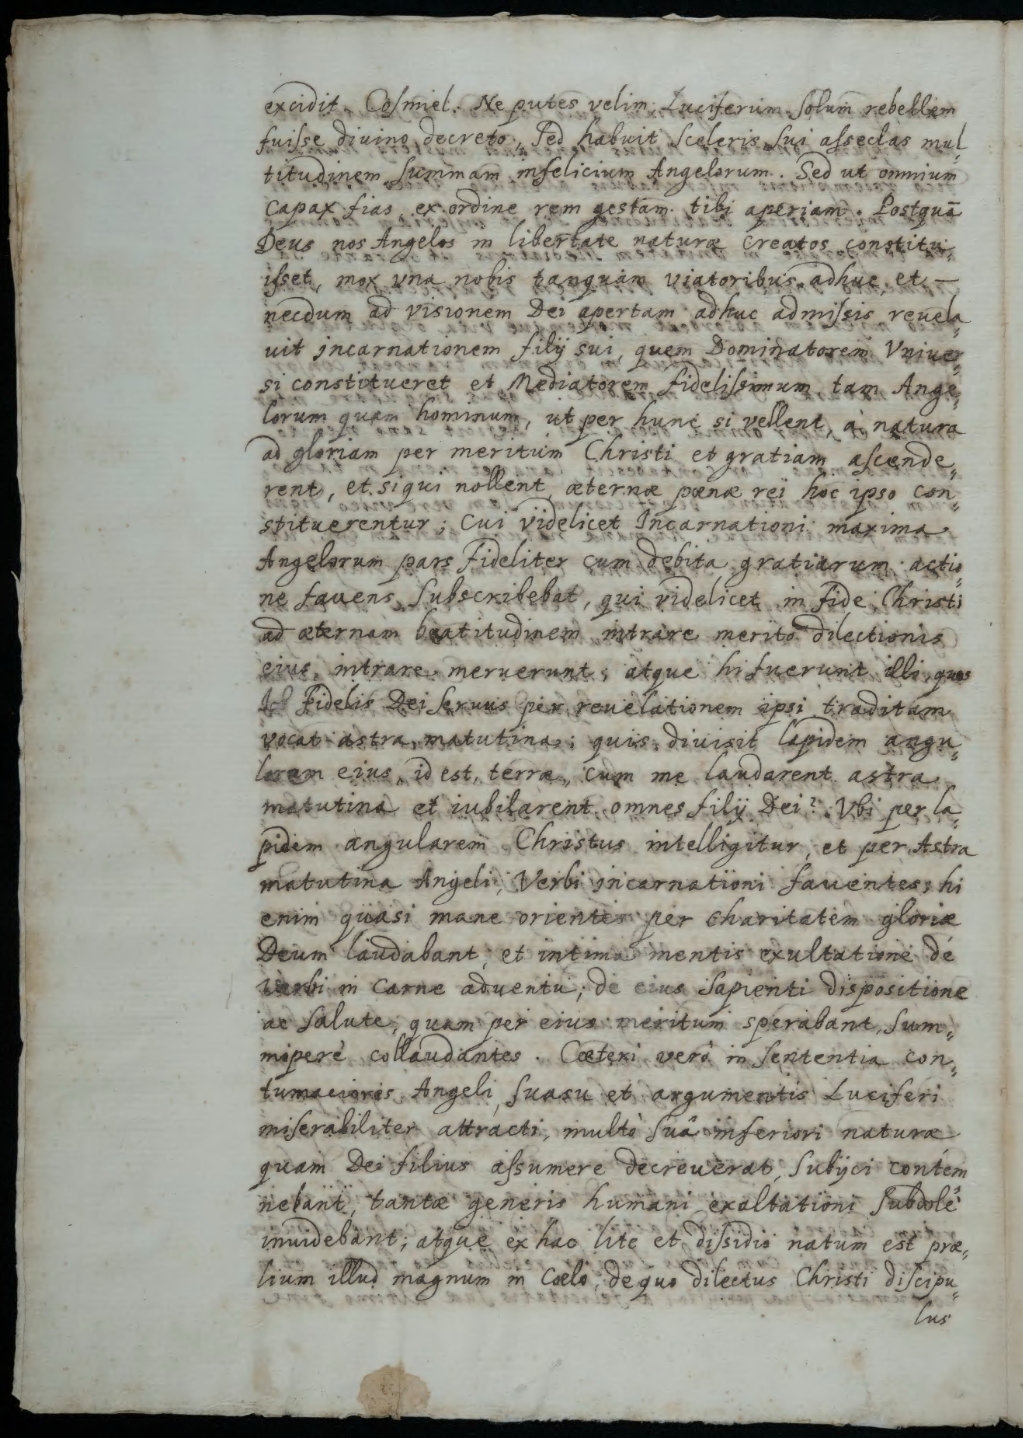 excidit. Cosmiel. Ne putes velim Luciferum solum rebellem
fuisse divino decreto, sed habuit sceleris sui asseclas mul„
titudinem summam infelicium Angelorum. Sed ut omnium
capax fias, ex ordine rem gestam tibi aperiam. Postquā
Deus nos Angelos in libertate naturæ creatos constitu„
isset, mox vna nobis tanquam viatoribus adhuc, et —
necdum ad visionem Dei apertam adhuc admissis reuela„
uit incarnationem filij sui, quem Dominatorem Vniuer„
si constitueret et Mediatorem fidelissimum tam Ange„
lorum quam hominum, ut per hunc si vellent, à natura
ad gloriam per meritum Christi et gratiam ascende„
rent, et si qui nollent, æternæ pœnæ rei hoc ipso con„
stituerentur; Cui videlicet Incarnationi maxima
Angelorum pars fideliter cum debita gratiarum actio„
ne fauens subscribebat, qui videlicet in fide Christi
ad æternam beatitudinem intrare merito dilectionis
eius, intrare meruerunt, atque hi fuerunt illi, quos
Fidelis Dei seruus per reuelationem ipsi traditam
vocat astra matutina; quis divisit lapidem angu„
larem eius, id est, terræ, cum me laudarent astra
matutina et iubilarent omnes filij Dei? Vbi per la„
pidem angularem Christus intelligitur, et per Astra
matutina Angeli, Verbi incarnationi fauentes; hi
enim quasi mane orientes per charitatem gloriæ
Deum laudabant, et intima mentis exultatione de
Verbi in carne adventu; de eius sapienti dispositione
ac salute, quam per eius meritum sperabant, sum„
moperè collaudantes. Cœteri verò in sententia con„
tumaciores Angeli, suasu et argumentis Luciferi
miserabiliter attracti, multò suâ inferiori naturæ
quam Dei filius assumere decreuerat, subijci contem„
nebant, tantæ generis humani exaltationi subdolè
inuidebant; atque ex hac lite et dissidio natum est præ„
lium illud magnum in Cœlo, de quo dilectus Christi discipu„
lus